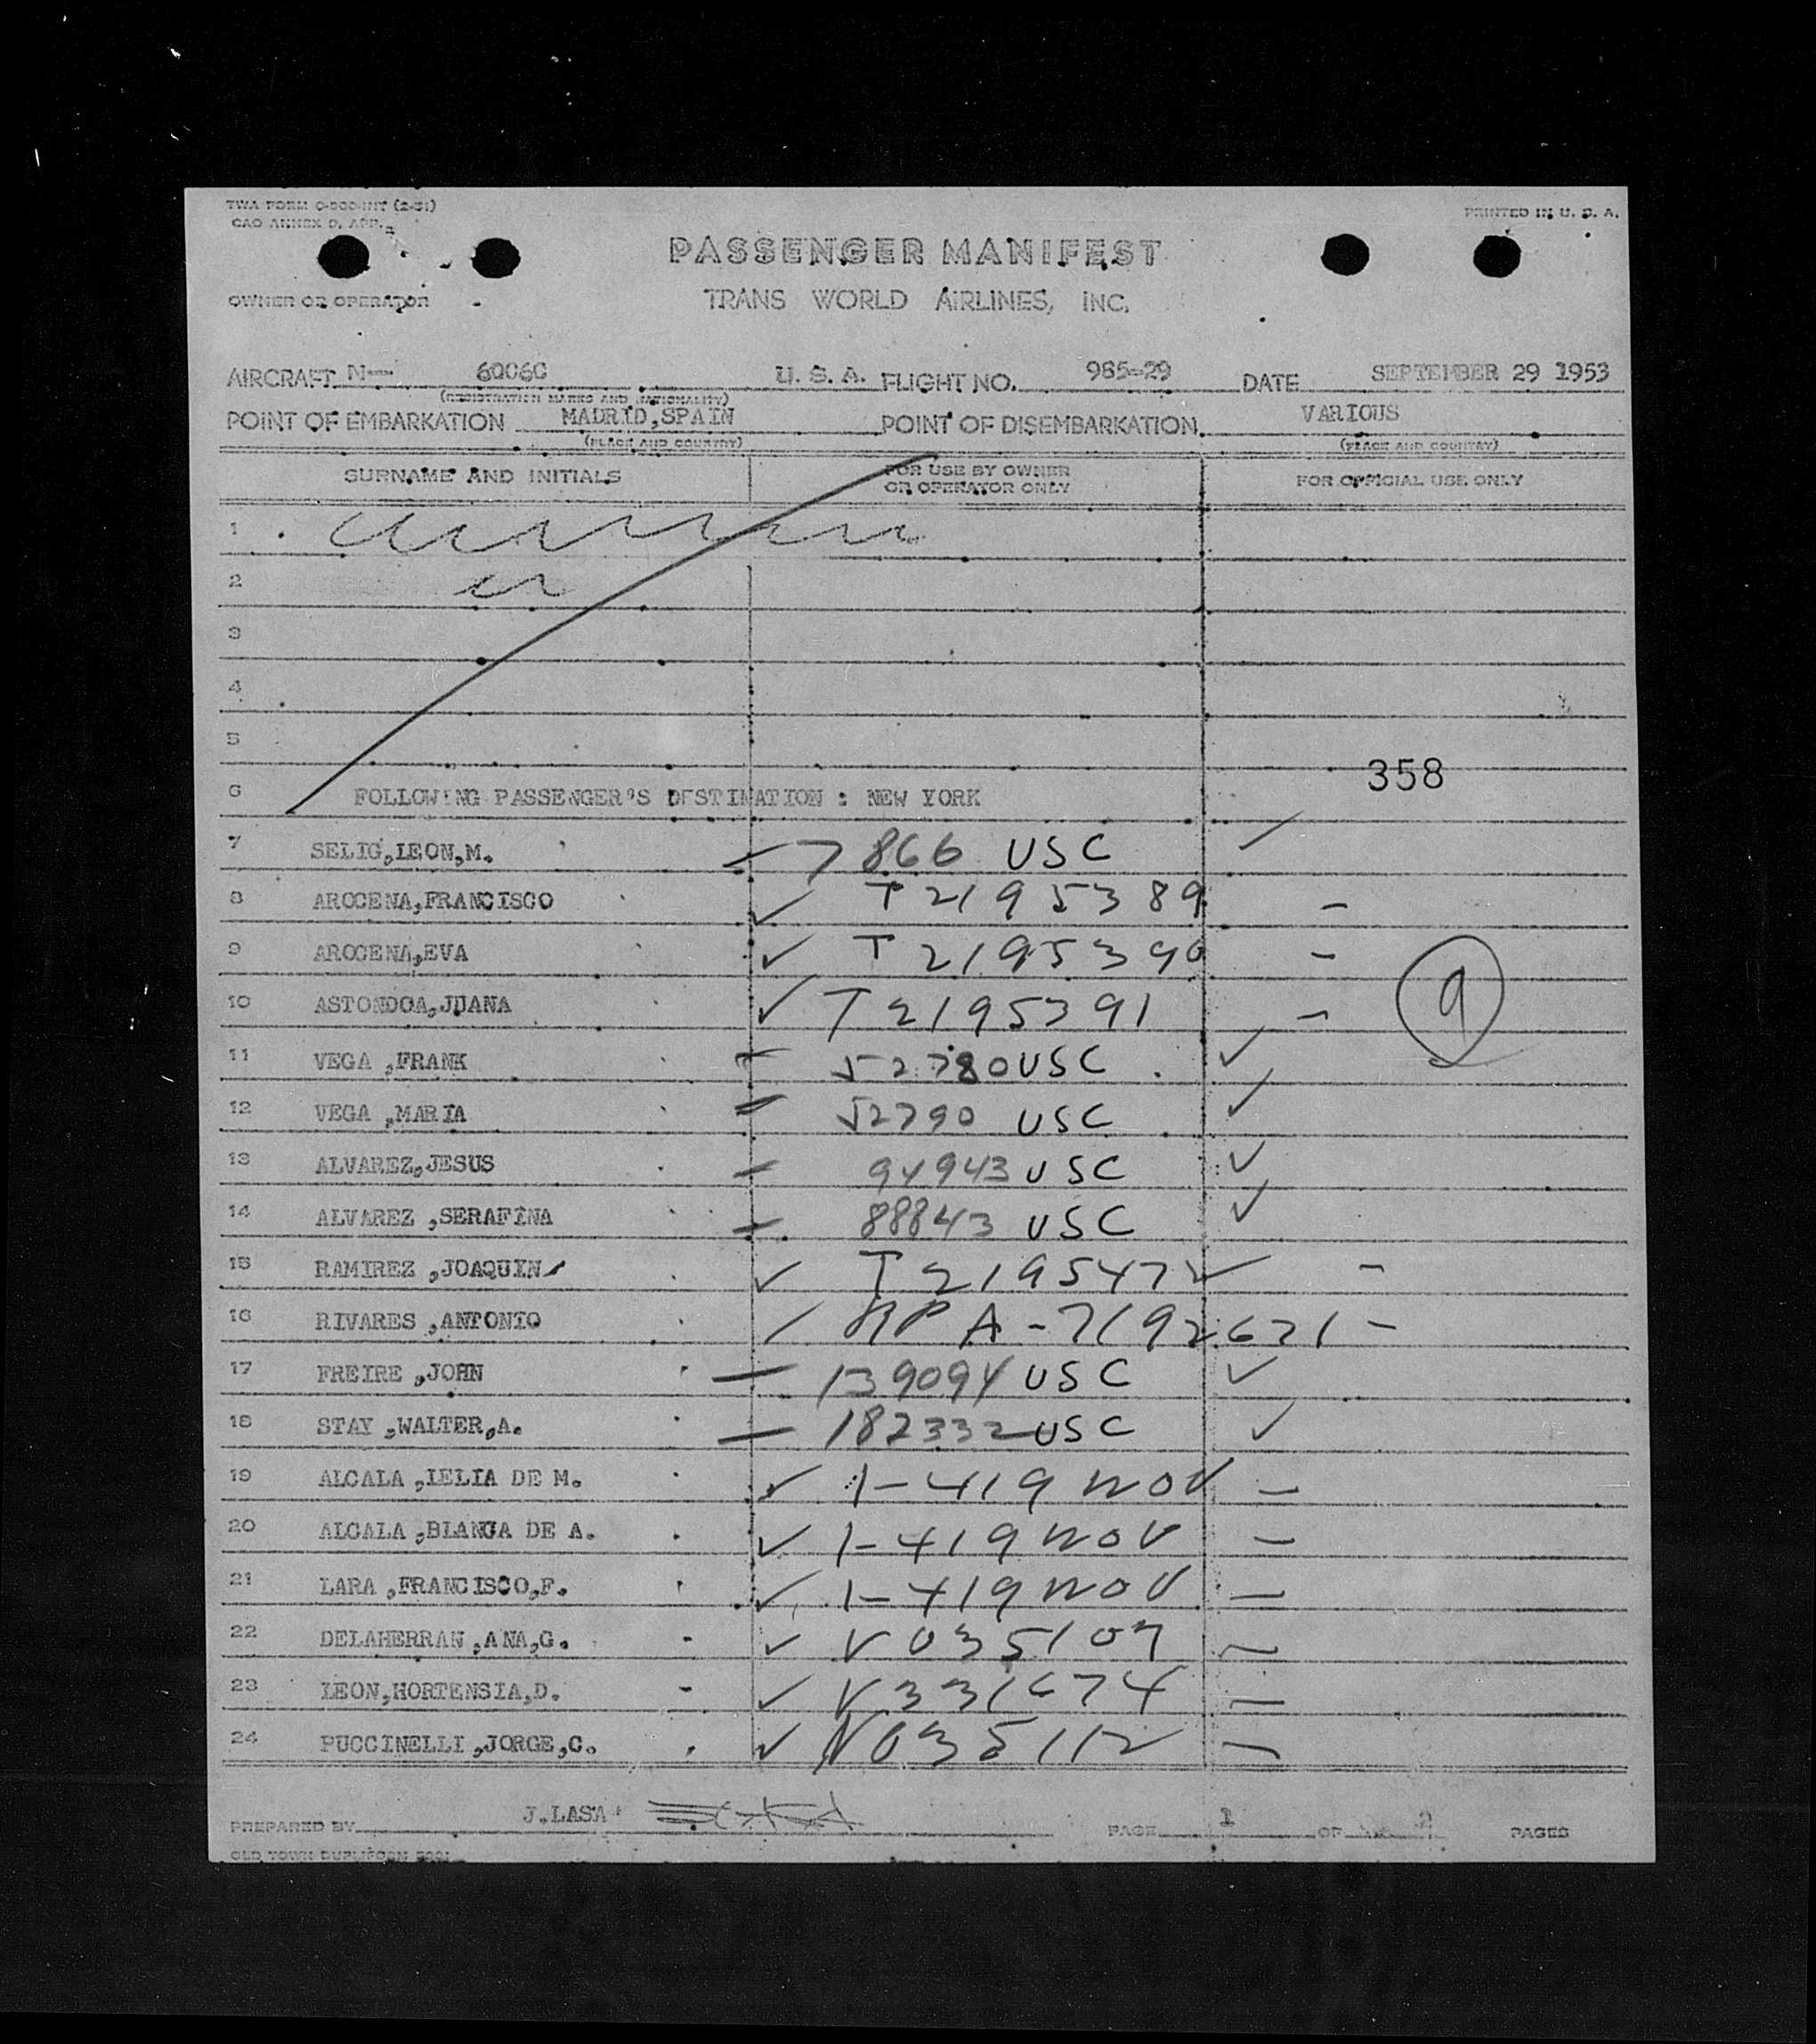 TWA FORM O-500-INT (2-51)
PRINTED IN U. S. A.
CAO ANNEX D, APP. 2
PASSENGER MANIFEST
OWNER OR OPERATOR
TRANS WORLD AIRLINES, INC.
AIRCRAFT N— 6006C U. S. A. FLIGHT NO. 985-29 DATE SEPTEMBER 29 1953
(REGISTRATION MARKS AND NATIONALITY)
POINT OF EMBARKATION MADRID,SPAIN POINT OF DISEMBARKATION VARIOUS
(PLACE AND COUNTRY) (PLACE AND COUNTRY)
SURNAME AND INITIALS FOR USE BY OWNER OR OPERATOR ONLY FOR OFFICIAL USE ONLY
1
2
3
4
5
358
6 FOLLOWING PASSENGER'S DESTINATION : NEW YORK
7 SELIG,LEON,M. 7866 USC
8 AROCENA,FRANCISCO T2195389
9 AROCENA,EVA T2195390
9
10 ASTONDOA,JUANA T2195391
11 VEGA ,FRANK 52780 USC
12 VEGA ,MARIA 52790 USC
13 ALVAREZ,JESUS 94943 USC
14 ALVAREZ ,SERAFINA 88843 USC
15 RAMIREZ ,JOAQUIN T219547
16 RIVARES ,ANTONIO RP A-7192671
17 FREIRE ,JOHN 139094 USC
18 STAY ,WALTER,A. 182332 USC
19 ALCALA ,LELIA DE M. 1-419 NOV
20 ALCALA ,BLANCA DE A. 1-419 NOV
21 LARA ,FRANCISCO,F. 1-419 NOV
22 DELAHERRAN ,ANA,G. V035107
23 LEON,HORTENSIA,D. V331674
24 PUCCINELLI ,JORGE,C. V035112
PREPARED BY J.LASA PAGE 1 OF 2 PAGES
OLD TOWN DUPLIFORM